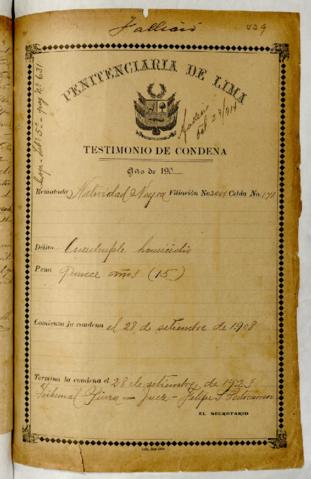 Falleció
429
PENITENCIARIA DE LIMA
falleció
TESTIMONIO DE CONDENA
Año de 190
Rematado Natividad Filiación No. Celda No. 171
Delito Cuadruple homicidio
Pena Quince años (15)
Comienza la condena el 28 de setiembre de 1908
Termina la condena el 28 de setiembre de 1923
Tribunal Piura - juez - Felipe S.
EL SECRETARIO